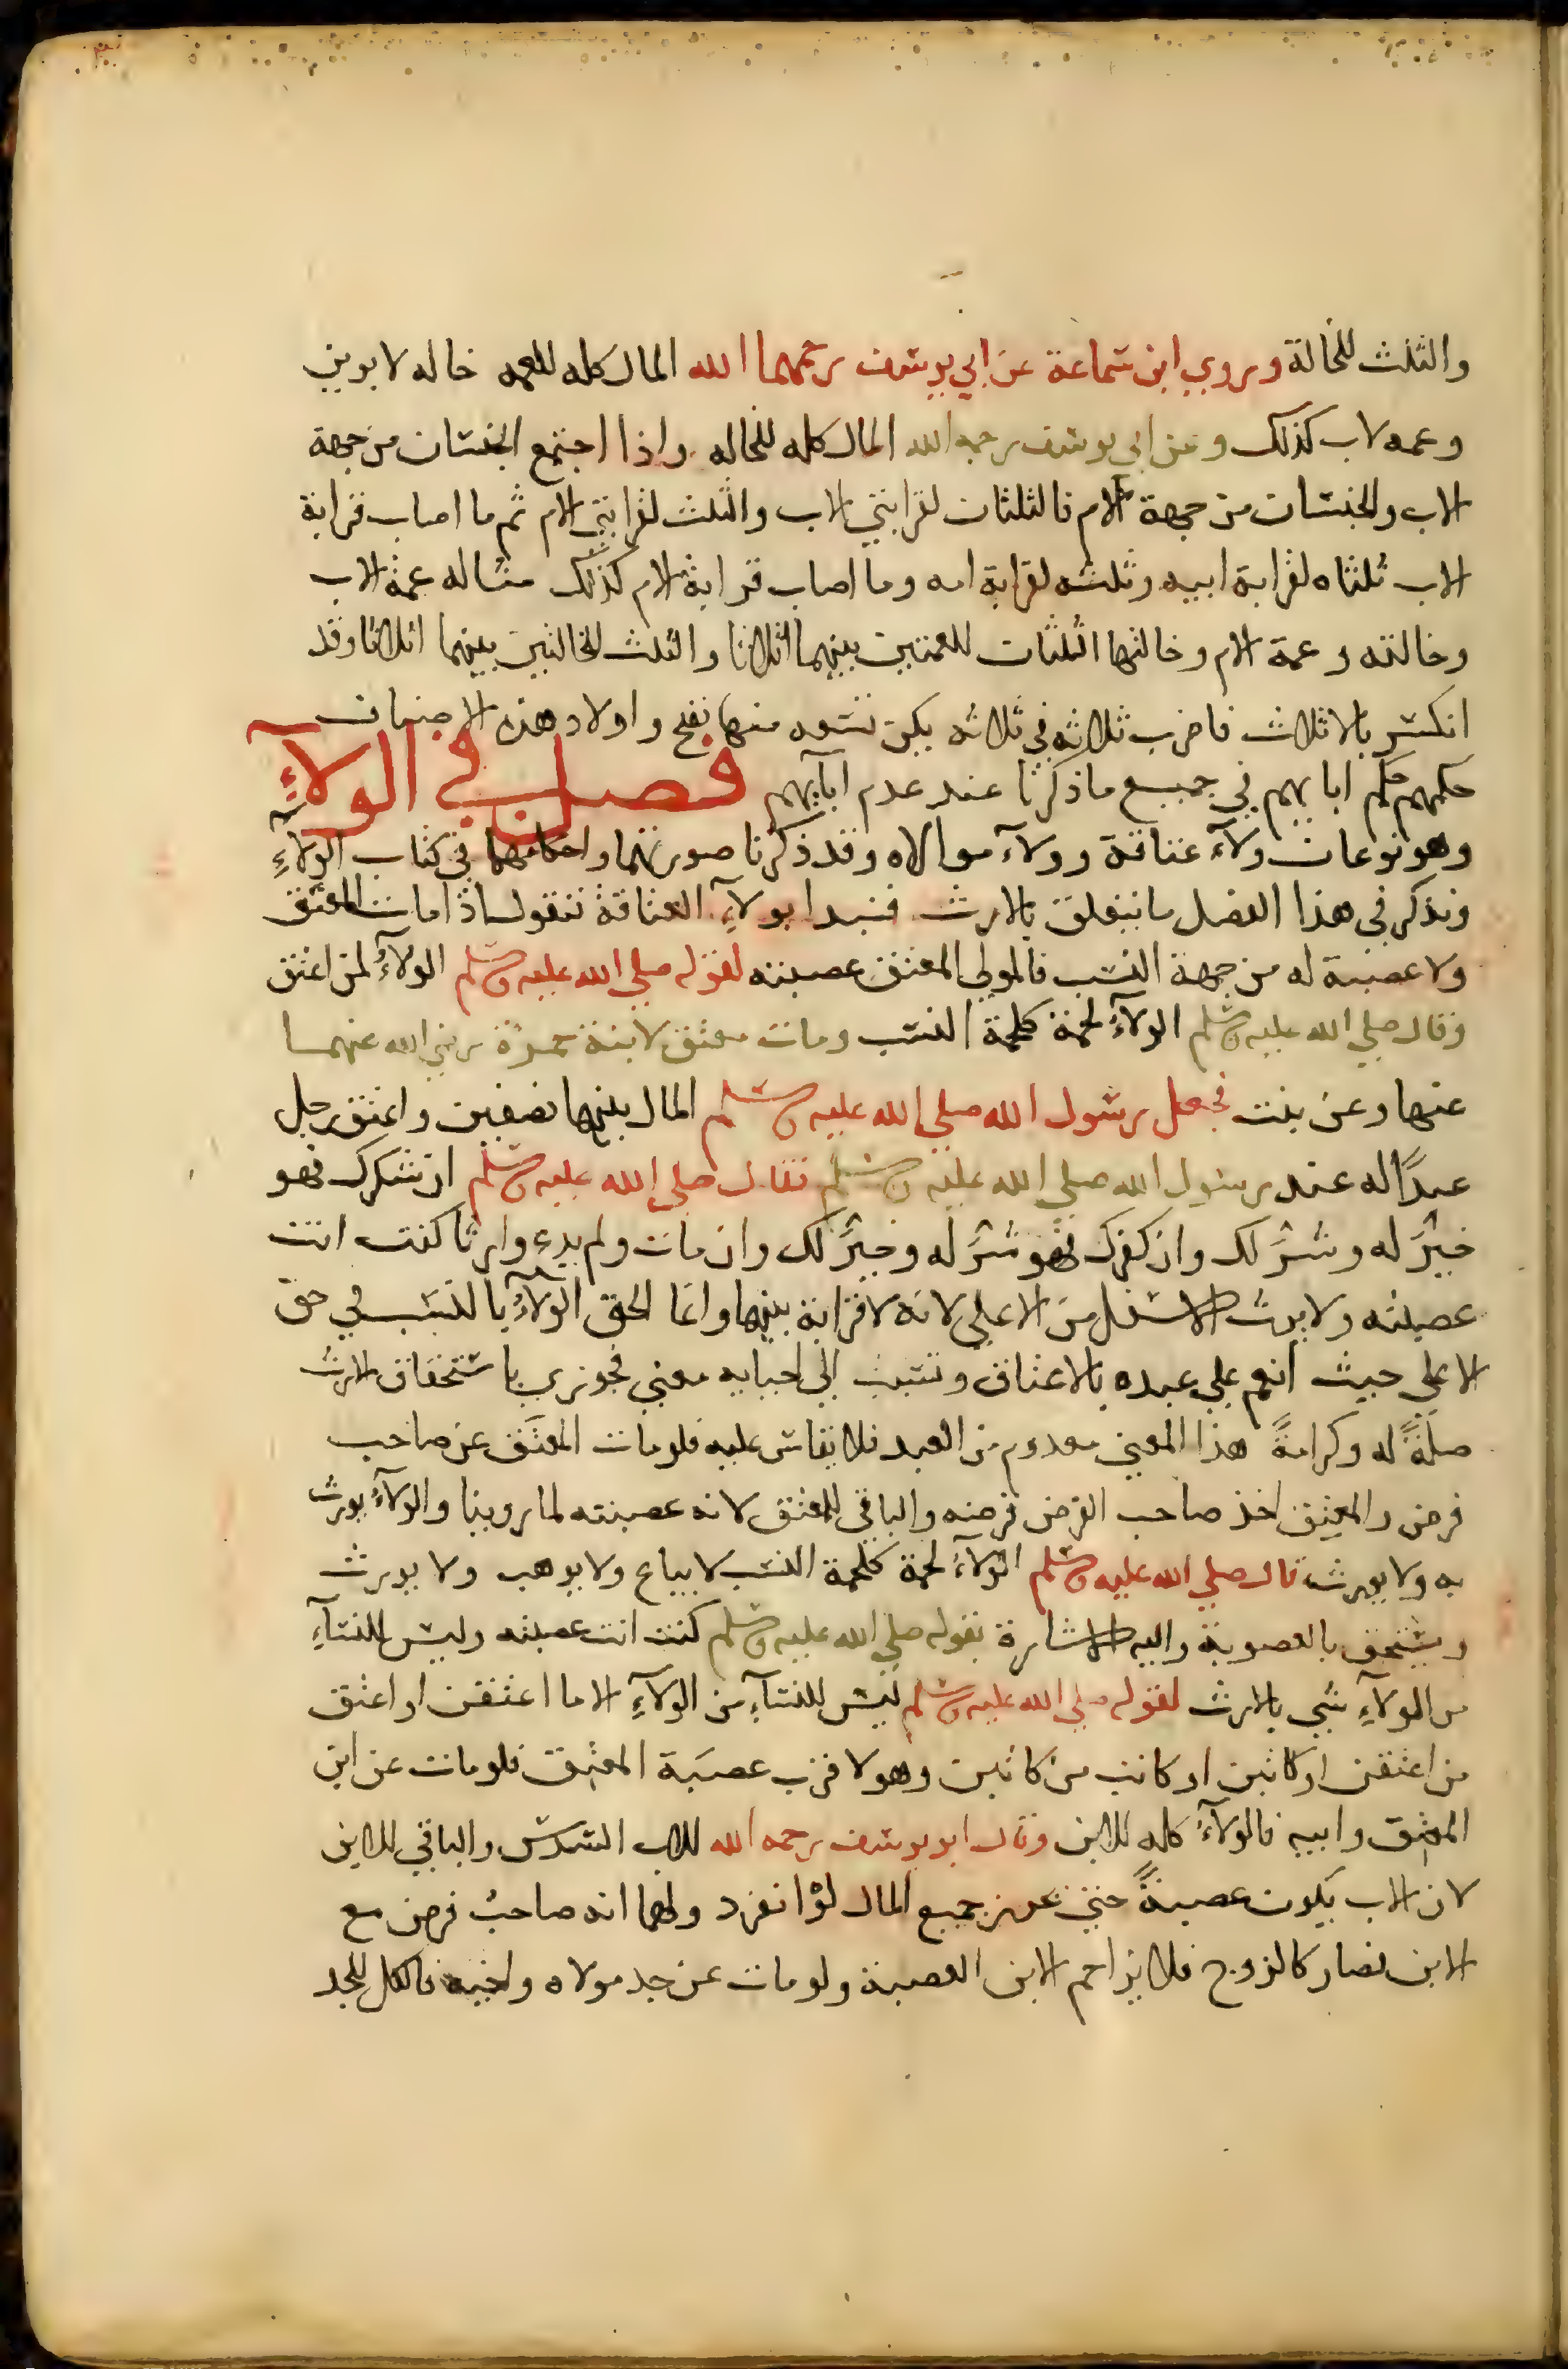 والثلث للخالة وروي ابن سماعة عن ابي يوسف رحمهما الله المال كله للعمه خاله لابوين
وعمه لاب كذلك وعن ابي يوسف رحمه الله المال كله للخاله واذا اجتمع الجنسان من جهة
الاب والجنسان من جهة الام فالثلثان لقرابتي الاب والثلث لقرابتي الام ثم ما اصاب قرابة
الاب ثلثاه لقرابة ابيه وثلثه لقرابة امه وما اصاب قرابة الام كذلك مثاله عمة الاب
وخالته وعمة الام وخالتها الثلثان للعمتين بينهما اثلاثا والثلث للخالتين بينهما اثلاثا وقد
انكسر بالاثلاث فاضرب ثلاثه في ثلاثه يكن تسعه منها تصح واولاد هذه الاصناف
حكمهم حكم ابايهم في جميع ما ذكرنا عند عدم آبآيهم فصل في الولآءِ
وهو نوعان ولآء عتاقة وولآء موالاه وقد ذكرنا صورتهما واحكامهما في كتاب الولآءِ
ونذكر في هذا الفصل ما يتعلق بالارث فنبدا بولآءِ العتاقة فنقول اذا مات المعتق
ولا عصبة له من جهة النسب فالمولي المعتق عصبته لقوله صلي الله عليه وسلم الولآءُ لمن اعتق
وقال صلي الله عليه وسلم الولآءُ لحمة كلحمة النسب ومات معتق لابنة حمزة رضي الله عنهما
عنها وعن بنت فجعل رسول الله صلي الله عليه وسلم المال بينهما نصفين واعتق رجل
عبدًا له عند رسول الله صلي الله عليه وسلم فقال صلي الله عليه وسلم ان شكرك فهو
خيرٌ له وشرٌ لك وان كفرك فهو شرٌ له وخيرٌ لك وان مات ولم يدع وارثا كنت انت
عصبته ولا يرث الاسفل من الاعلي لانه لا قرابة بينهما وانما الحق الولآءُ بالنسب في حق
الاعلي حيث انعم علي عبده بالاعتاق وتسبب الي احيايه معني فجوزي باستحقاق الارث
صلةً له وكرامةً هذا المعني معدوم من العبد فلا يقاس عليه فلو مات المعتَق عن صاحب
فرض والمعتِق اخذ صاحب الفرض فرضه والباقي للمعتق لانه عصبته لما روينا والولآءُ يورث
به ولا يورث قال صلي الله عليه وسلم الولآءُ لحمة كلحمة النسب لا يباع ولا يوهب ولا يورث
ويستحق بالعصوبة واليه الاشارة بقوله صلي الله عليه وسلم كنت انت عصبته وليس للنسآءِ
من الولآءِ شي بالارث لقوله صلي الله عليه وسلم ليس للنسآءِ من الولآءِ الا ما اعتقن او اعتق
من اعتقن او كاتبن او كاتب من كاتبن وهو لاقرب عصبَة المعتِق فلو مات عن ابن
المعتِق وابيه فالولآءُ كله للابن وقال ابو يوسف رحمه الله للاب السدس والباقي للابن
لان الاب يكون عصبةً حتي يحرز جميع المال لو انفرد ولهما انه صاحبُ فرض مع
الابن فصار كالزوج فلا يزاحم الابن العصبة ولو مات عن جد مولاه واخيه فالكل للجد